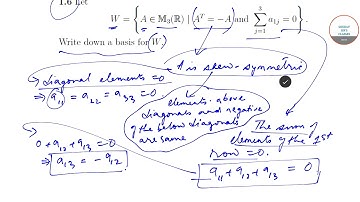 1.6 Let
W = { A ∈ M₃(ℝ) | A^T = −A and ∑_{j=1}^{3} a_{1j} = 0 } .
Write down a basis for W.
A is skew-symmetric
diagonal elements = 0
⇒ a₁₁ = a₂₂ = a₃₃ = 0
elements above
diagonals and negative
of the below diagonals
are same
The sum of
elements of the 1st
row = 0.
0 + a₁₂ + a₁₃ = 0
⇒ a₁₃ = − a₁₂
a₁₁ + a₁₂ + a₁₃ = 0